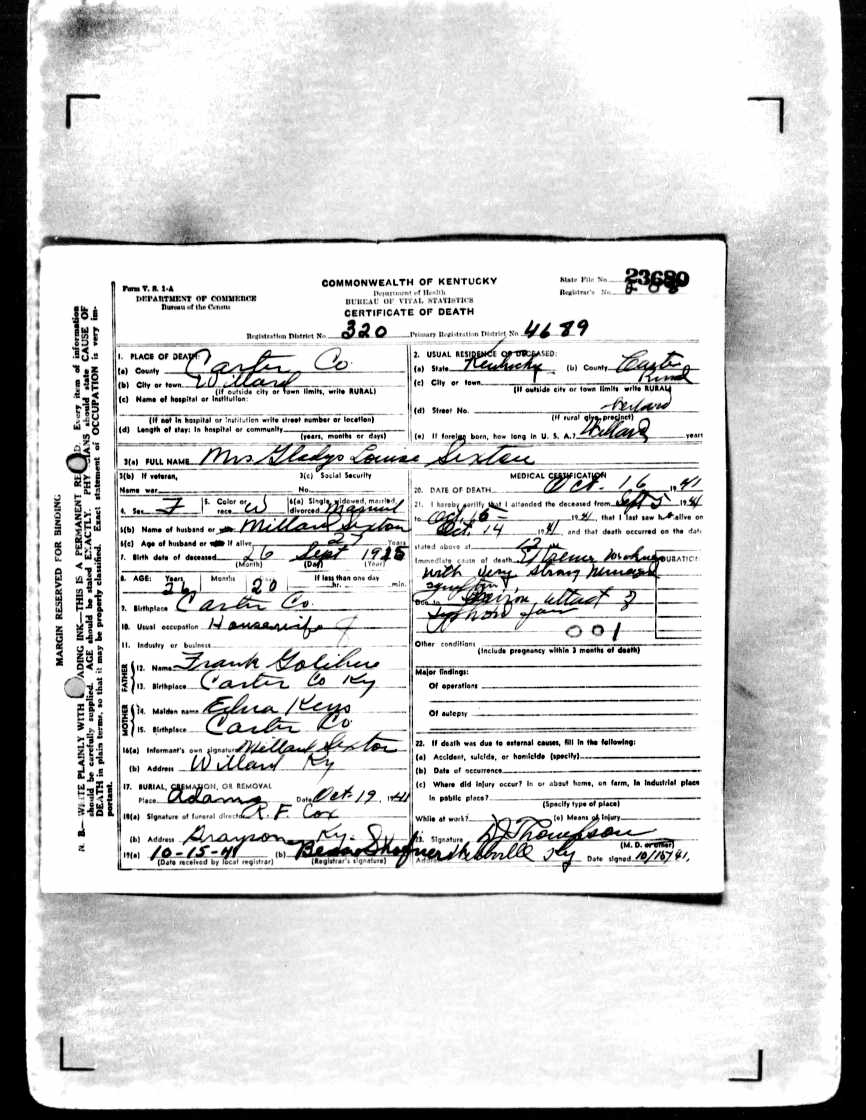 MARGIN RESERVED FOR BINDING
N. B.—WRITE PLAINLY WITH ADING INK—THIS IS A PERMANENT RE D. Every item of information
should be carefully supplied. AGE should be stated EXACTLY. PHY IANS should state CAUSE OF
DEATH in plain terms, so that it may be properly classified. Exact statement of OCCUPATION is very im-
portant.
Form V. S. 1-A
DEPARTMENT OF COMMERCE
Bureau of the Census
COMMONWEALTH OF KENTUCKY
Department of Health
BUREAU OF VITAL STATISTICS
CERTIFICATE OF DEATH
State File No. 23680
Registrar's No.
Registration District No. 320 Primary Registration District No. 4689
1. PLACE OF DEATH:
(a) County Carter Co.
(b) City or town Willard
(If outside city or town limits, write RURAL)
(c) Name of hospital or institution:
(If not in hospital or institution write street number or location)
(d) Length of stay: In hospital or community
(years, months or days)
2. USUAL RESIDENCE OF DECEASED:
(a) State Kentucky (b) County Carter
(c) City or town Rural
(If outside city or town limits write RURAL)
(d) Street No. Willard
(If rural give precinct)
(e) If foreign born, how long in U. S. A.? Willard years
3(a) FULL NAME Mrs Gladys Louise Sexton
3(b) If veteran,
Name war
3(c) Social Security
No.
4. Sex F 5. Color or race W 6(a) Single, widowed, married, divorced Married
6(b) Name of husband or Millard Sexton
6(c) Age of husband or if alive 27 Years
7. Birth date of deceased 26 Sept 1915
(Month) (Day) (Year)
8. AGE: Years Months If less than one day
26 20 hr. min.
9. Birthplace Carter Co.
10. Usual occupation Housewife
11. Industry or business
FATHER
12. Name Frank
13. Birthplace Carter Co Ky
MOTHER
14. Maiden name Edna Keys
15. Birthplace Carter Co.
16(a) Informant's own signature Millard Sexton
(b) Address Willard Ky
17. BURIAL, CREMATION, OR REMOVAL
Place Adams Date Oct. 19, 1941
18(a) Signature of funeral director R. F. Cox
(b) Address Grayson Ky.
19(a) 10-15-41 (b)
(Date received by local registrar) (Registrar's signature)
MEDICAL CERTIFICATION
20. DATE OF DEATH Oct. 16 1941
21. I hereby certify that I attended the deceased from Sept 5 1941
to Oct. 15 1941, that I last saw h alive on
Oct. 14 1941, and that death occurred on the date
stated above at 12
Immediate cause of death DURATION
with very strong
Due to attack of
001
Other conditions
(Include pregnancy within 3 months of death)
Major findings:
Of operations
Of autopsy
22. If death was due to external causes, fill in the following:
(a) Accident, suicide, or homicide (specify)
(b) Date of occurrence
(c) Where did injury occur? In or about home, on farm, in industrial place
in public place?
(Specify type of place)
While at work? (e) Means of injury
23. Signature Thompson
(M. D. or other)
Address Ky Date signed 10/15/41.